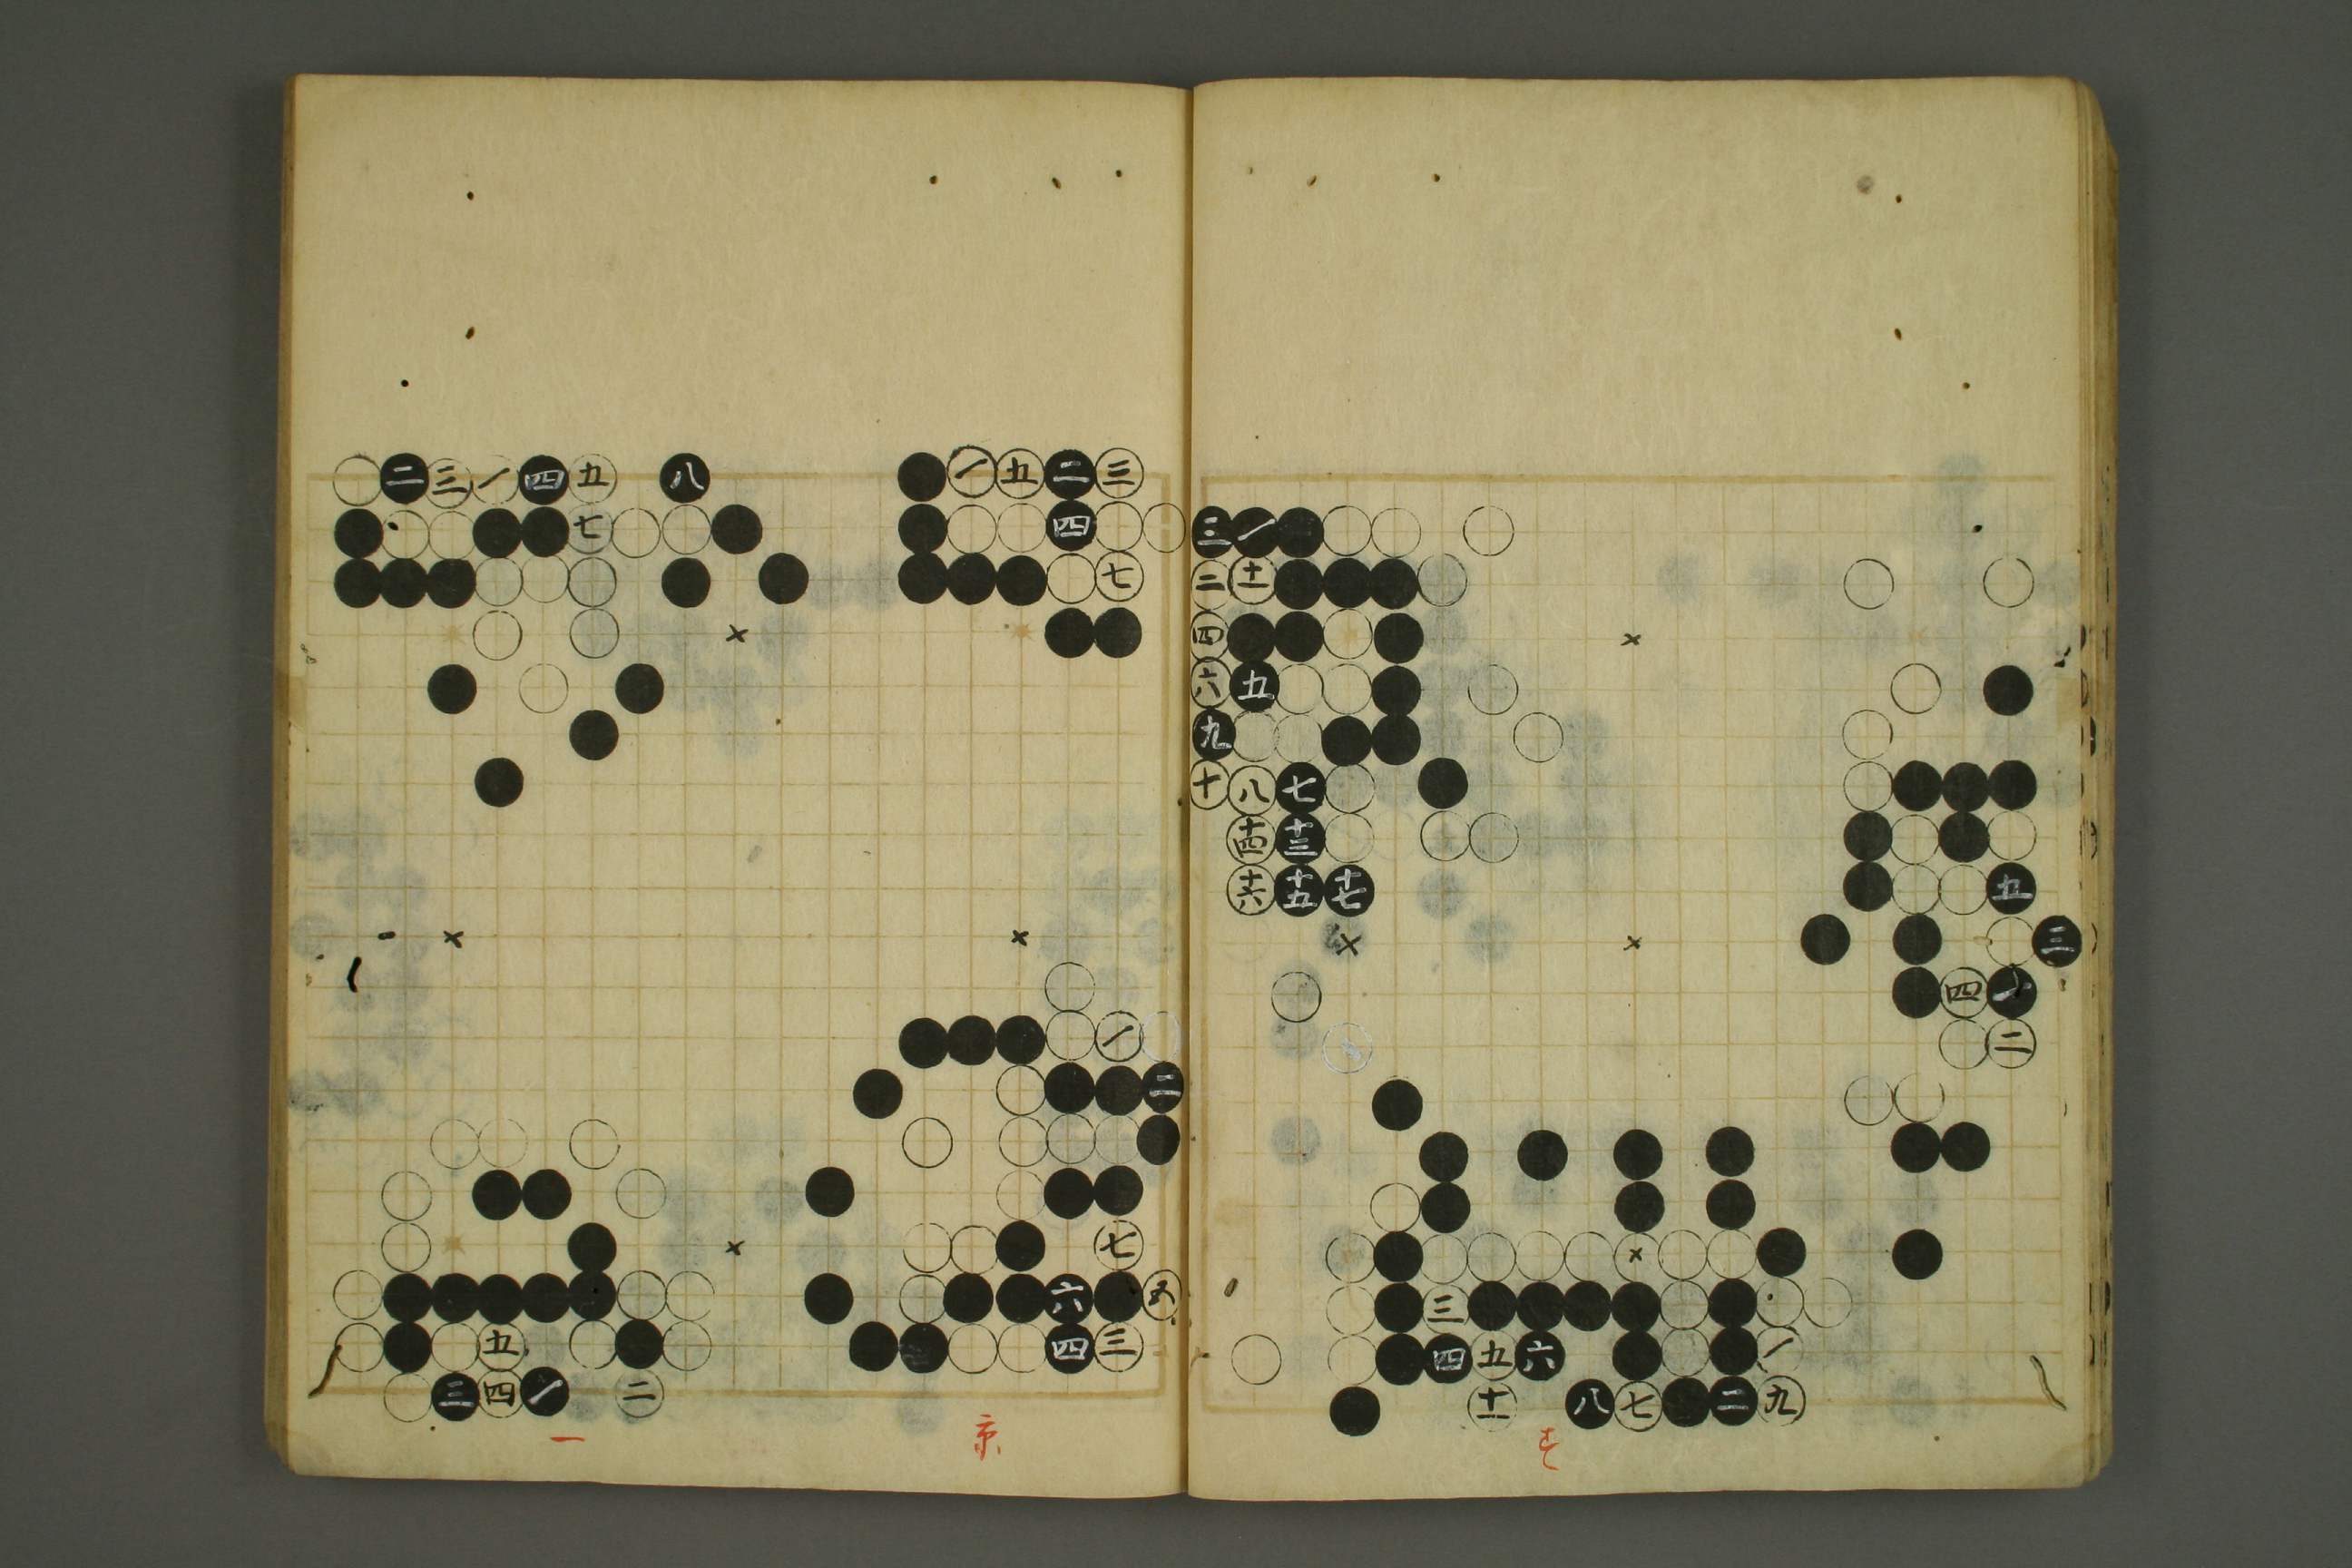 三 一
二 十一
四
六 五
九
十 八 七
十四 十三
十六 十五 十七
五
三
四 一
二
三
四 五 六 一
十一 八 七 二 九
二 三 一 四 五 八
七
一 五 二 三
四
七
一
二
七
六 五
四 三
五
三 四 一 二
一 京